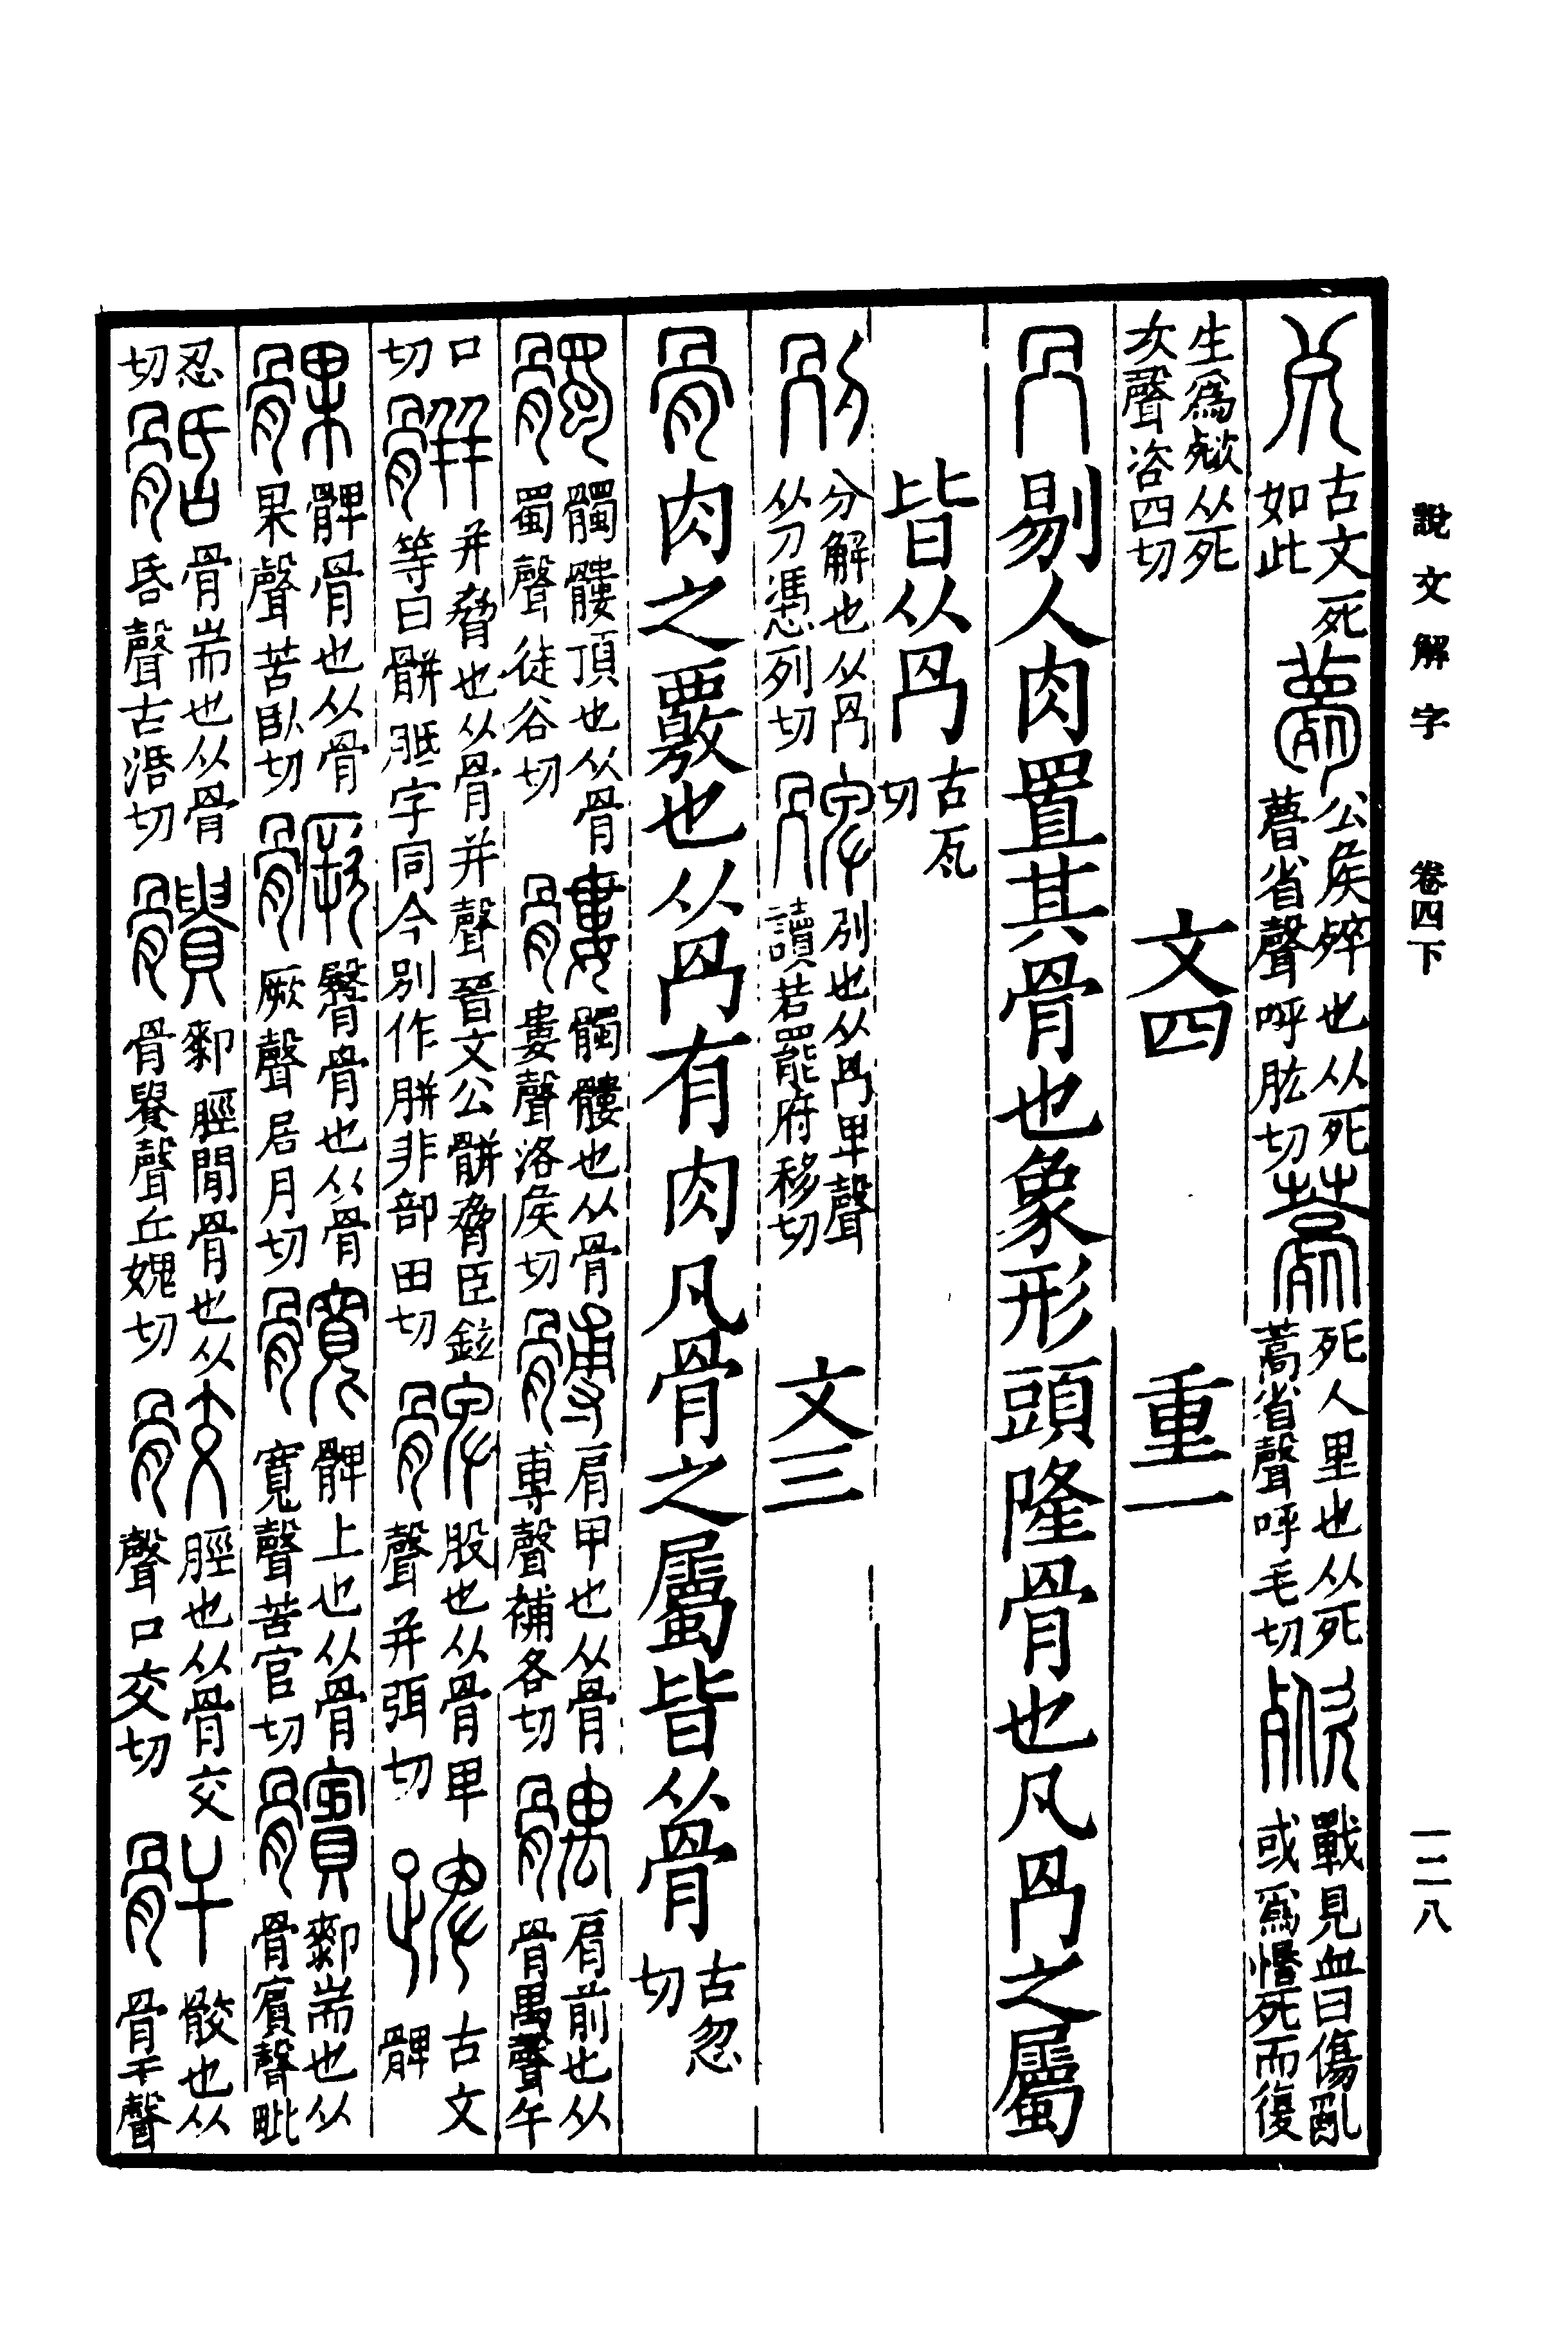 說文解字　卷四下　一二八
古文死如此 薨 公矦𣨛也从死瞢省聲呼肱切 薧 死人里也从死蒿省聲呼毛切 𣩠 戰見血曰傷亂或爲惽死而復
生爲𣩠从死次聲咨四切 文四 重一
冎 剔人肉置其骨也象形頭隆骨也凡冎之屬
皆从冎 古瓦切
𠛰 分解也从冎从刀憑列切 𠕘 別也从冎卑聲讀若罷府移切 文三
骨 肉之覈也从冎有肉凡骨之屬皆从骨 古忽切
髑 髑髏頂也从骨蜀聲徒谷切 髏 髑髏也从骨婁聲洛矦切 髆 肩甲也从骨尃聲補各切 髃 肩前也从骨禺聲午
口切 骿 并脅也从骨并聲晉文公骿脅臣鉉等曰骿胝字同今別作胼非部田切 髀 股也从骨卑聲并弭切 古文髀
髁 髀骨也从骨果聲苦臥切 𩪗 臀骨也从骨厥聲居月切 髖 髀上也从骨寬聲苦官切 髕 厀耑也从骨賓聲毗
忍切 𩨷 骨耑也从骨昏聲古湉切 䯣 厀脛閒骨也从骨貴聲丘媿切 骹 脛也从骨交聲口交切 骭 骹也从骨干聲